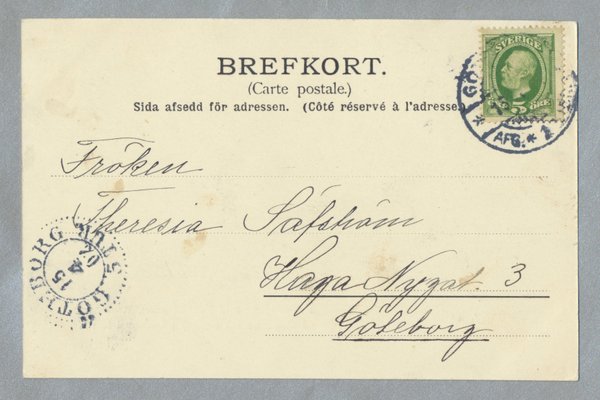 BREFKORT.
(Carte postale.)
Sida afsedd för adressen. (Côté réservé à l'adresse.
SVERIGE
5 ÖRE
AFG. * 1
Fröken
Theresia Säfström
Haga Nygat. 3
Göteborg
GÖTEBORG STUR
15
4
02